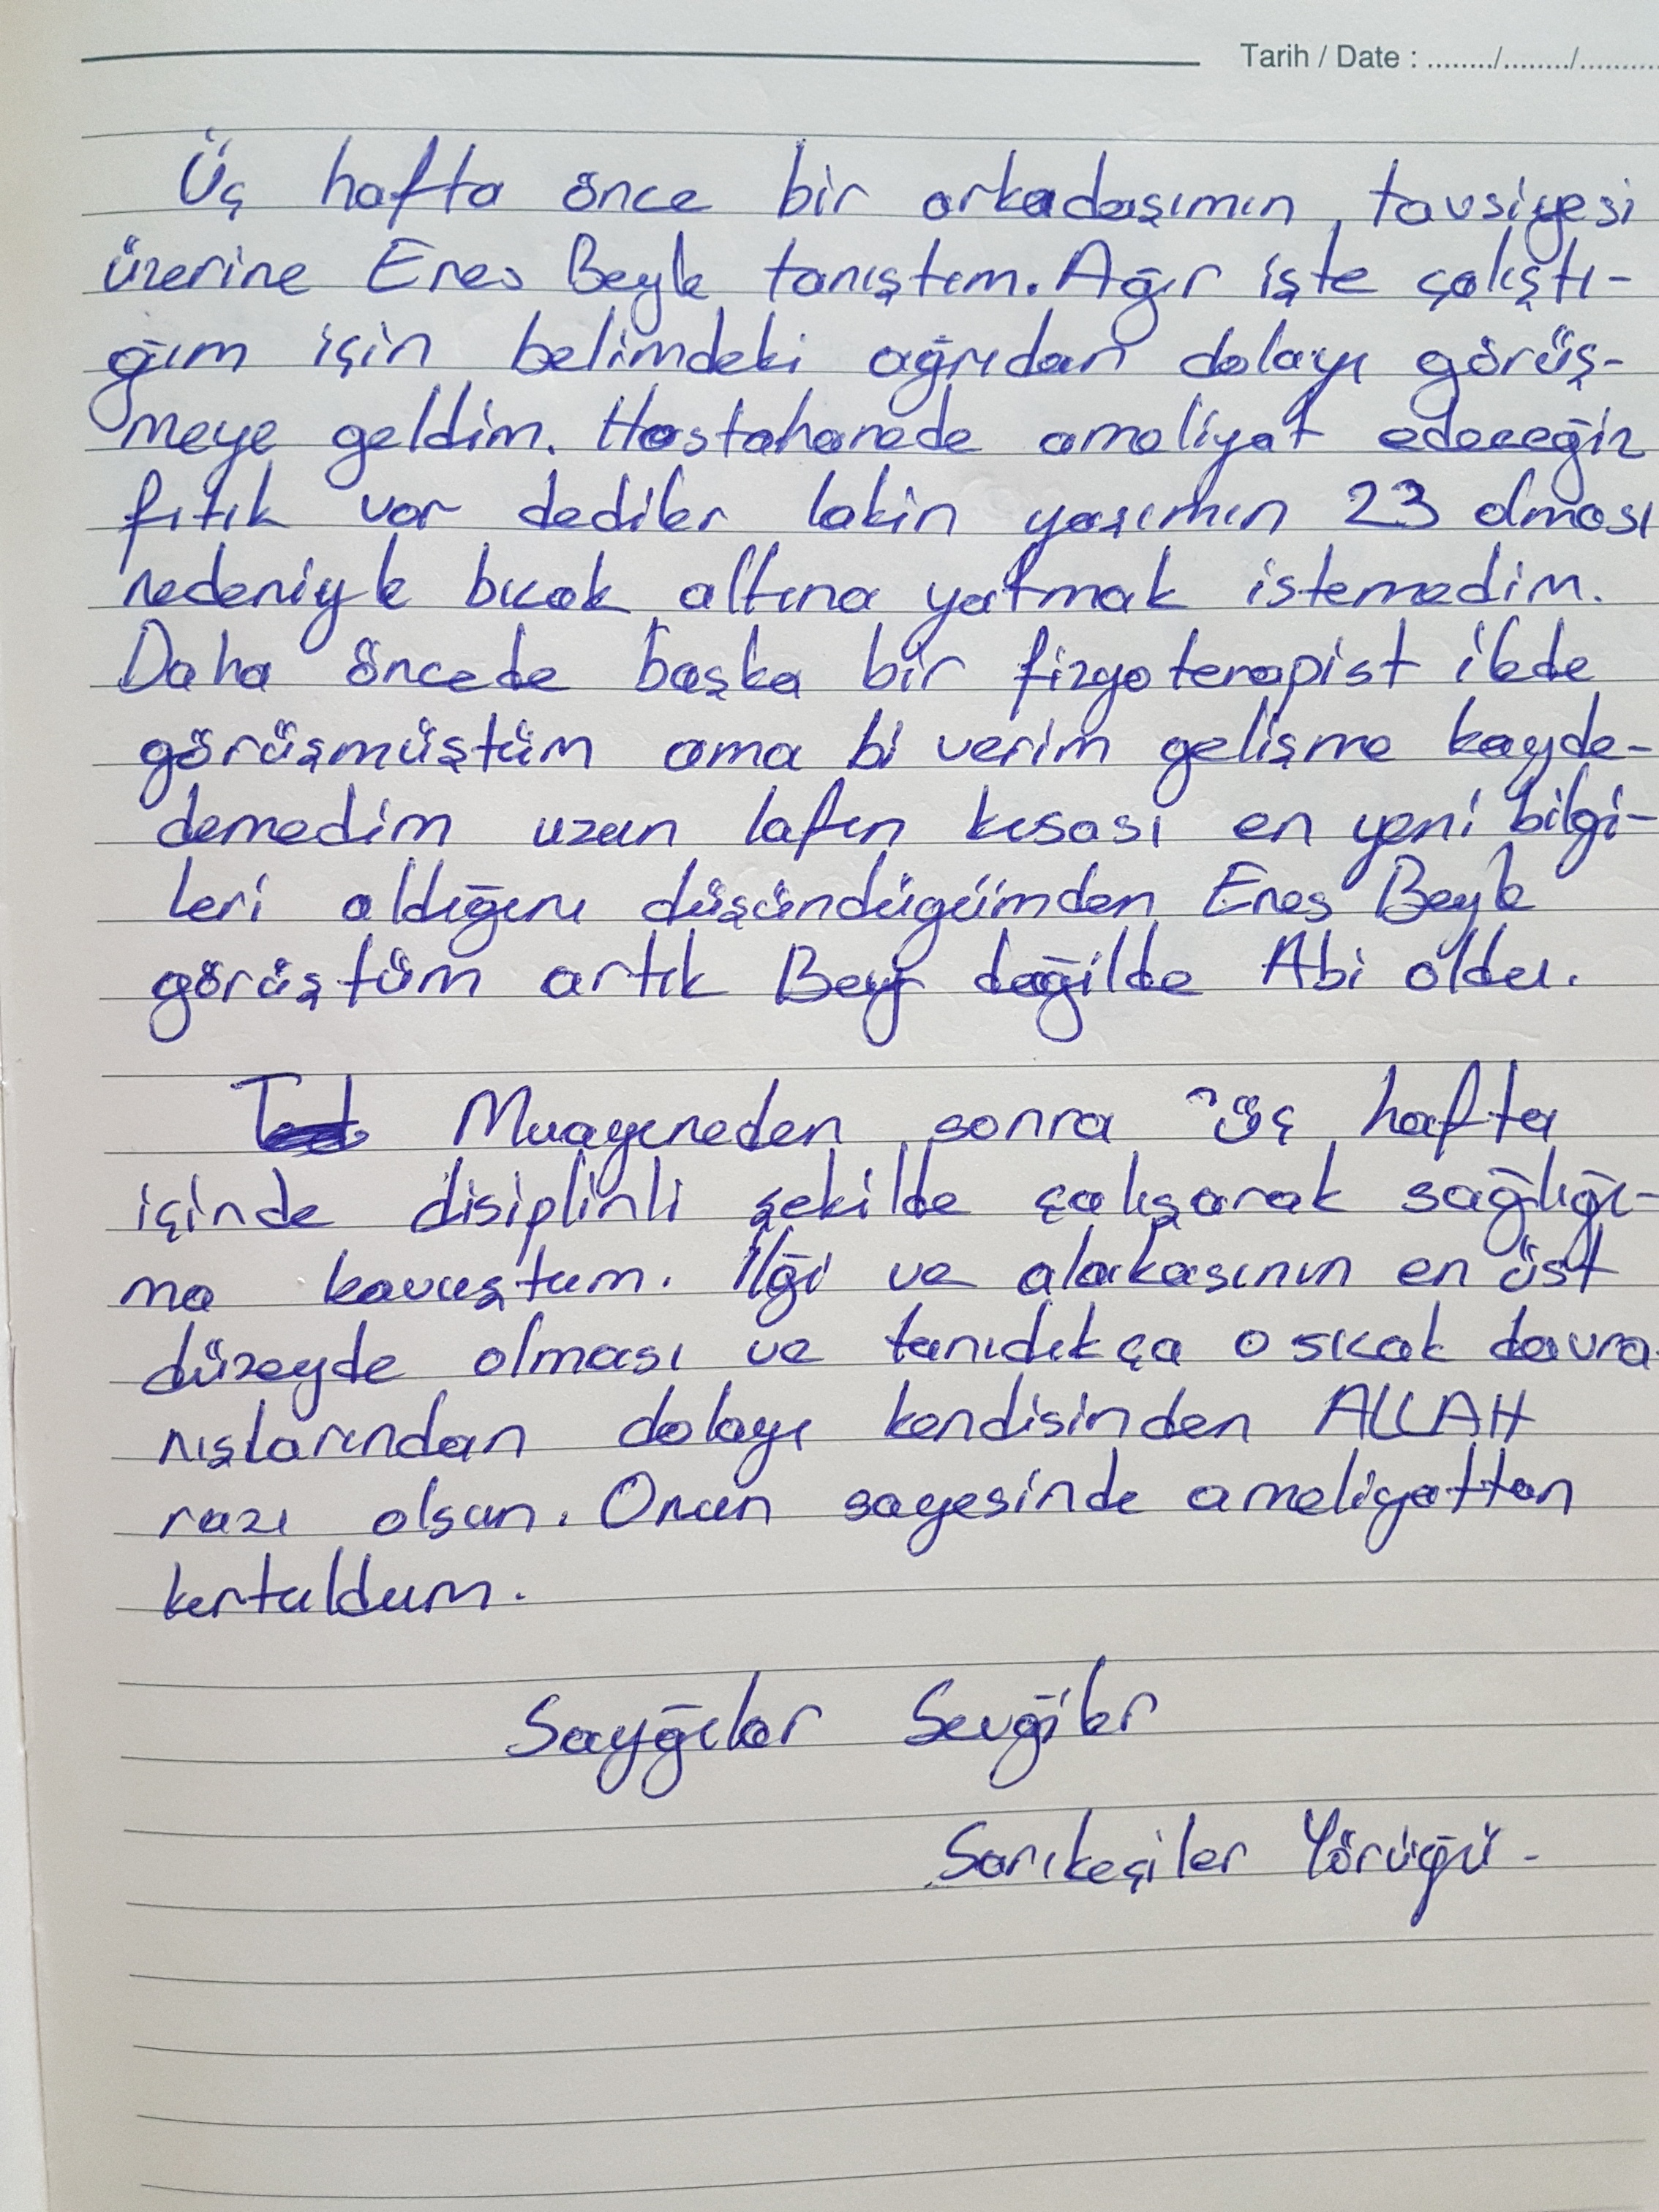 Tarih / Date : ......../......../..........
Üç hafta önce bir arkadaşımın tavsiyesi
üzerine Enes Beyle tanıştım. Ağır işte çalıştı-
ğım için belimdeki ağrıdan dolayı görüş-
meye geldim. Hastahanede ameliyat edeceğiz
fıtık var dediler lakin yaşımın 23 olması
nedeniyle bıcak altına yatmak istemedim.
Daha öncede başka bir fizyoterapist ilede
görüşmüştüm ama bi verim gelişme kayde-
demedim uzun lafın kısası en yeni bilgi-
leri aldığını düşündügümden Enes Beyle
görüştüm artık Bey değilde Abi oldu.
Muayeneden sonra üç hafta
içinde disiplinli şekilde çalışarak sağlığı-
ma kavuştum. İlği ve alakasının en üst
düzeyde olması ve tanıdıkça o sıcak davra-
nışlarından dolayı kendisinden ALLAH
razı olsun. Onun sayesinde ameliyattan
kurtuldum.
Sayğılar Sevğiler
Sarıkeçiler Yörüğü.